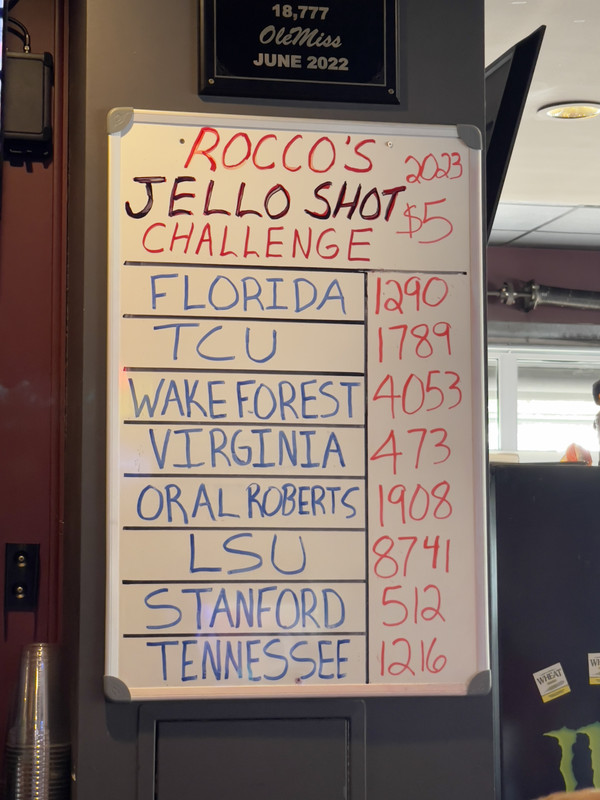 18,777
OleMiss
JUNE 2022
ROCCO'S 2023
JELLO SHOT $5
CHALLENGE
FLORIDA 1290
TCU 1789
WAKE FOREST 4053
VIRGINIA 473
ORAL ROBERTS 1908
LSU 8741
STANFORD 512
TENNESSEE 1216
WHEAT